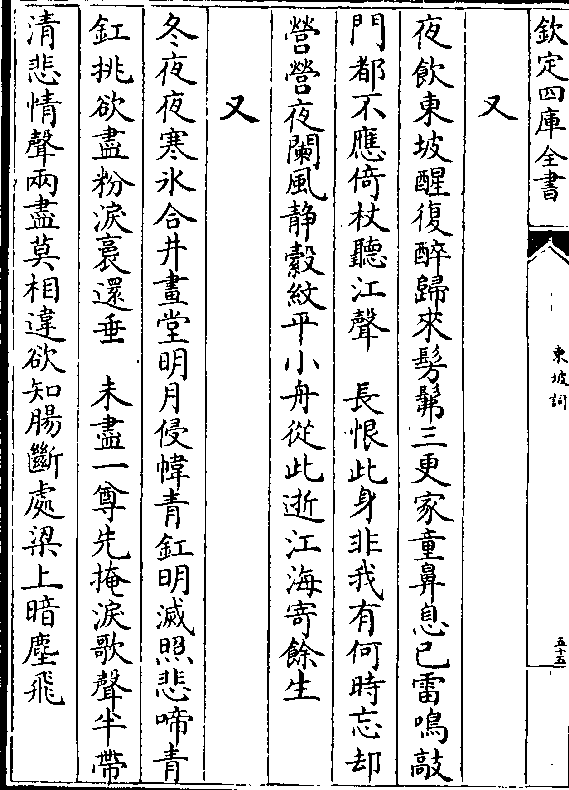 欽定四庫全書
東坡詞
五十五
又
夜飲東坡醒復醉歸來髣髴三更家童鼻息已雷鳴敲
門都不應倚杖聽江聲　長恨此身非我有何時忘却
營營夜闌風静縠紋平小舟從此逝江海寄餘生
又
冬夜夜寒氷合井畫堂明月侵幃青釭明滅照悲啼青
釭挑欲盡粉淚裛還垂　未盡一尊先掩淚歌聲半帶
清悲情聲兩盡莫相違欲知腸斷處梁上暗塵飛